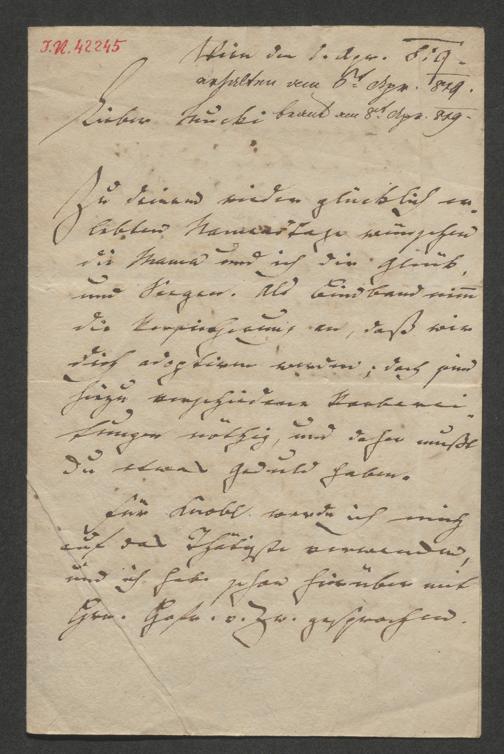 I.N. 42245
Wien den 1. Apr. 819.
erhalten am 6t Apr. 819.
Lieber beant. am 8t Apr. 819.
Zu deinem wieder glücklich er-
lebten Namenstage wünschen
die Mama und ich dir Glük,
und Seegen. Als Bindband nimm
die Versicherung an, daß wir
dich adoptiren werden; doch sind
hiezu verschiedene Vorberei-
tungen nöthig, und daher mußt
Du etwas Geduld haben.
Für Knobl. werde ich mich
auf das Thätigste verwenden,
und ich habe schon hierüber mit
Hrn. Hofr. v. Zw. gesprochen.